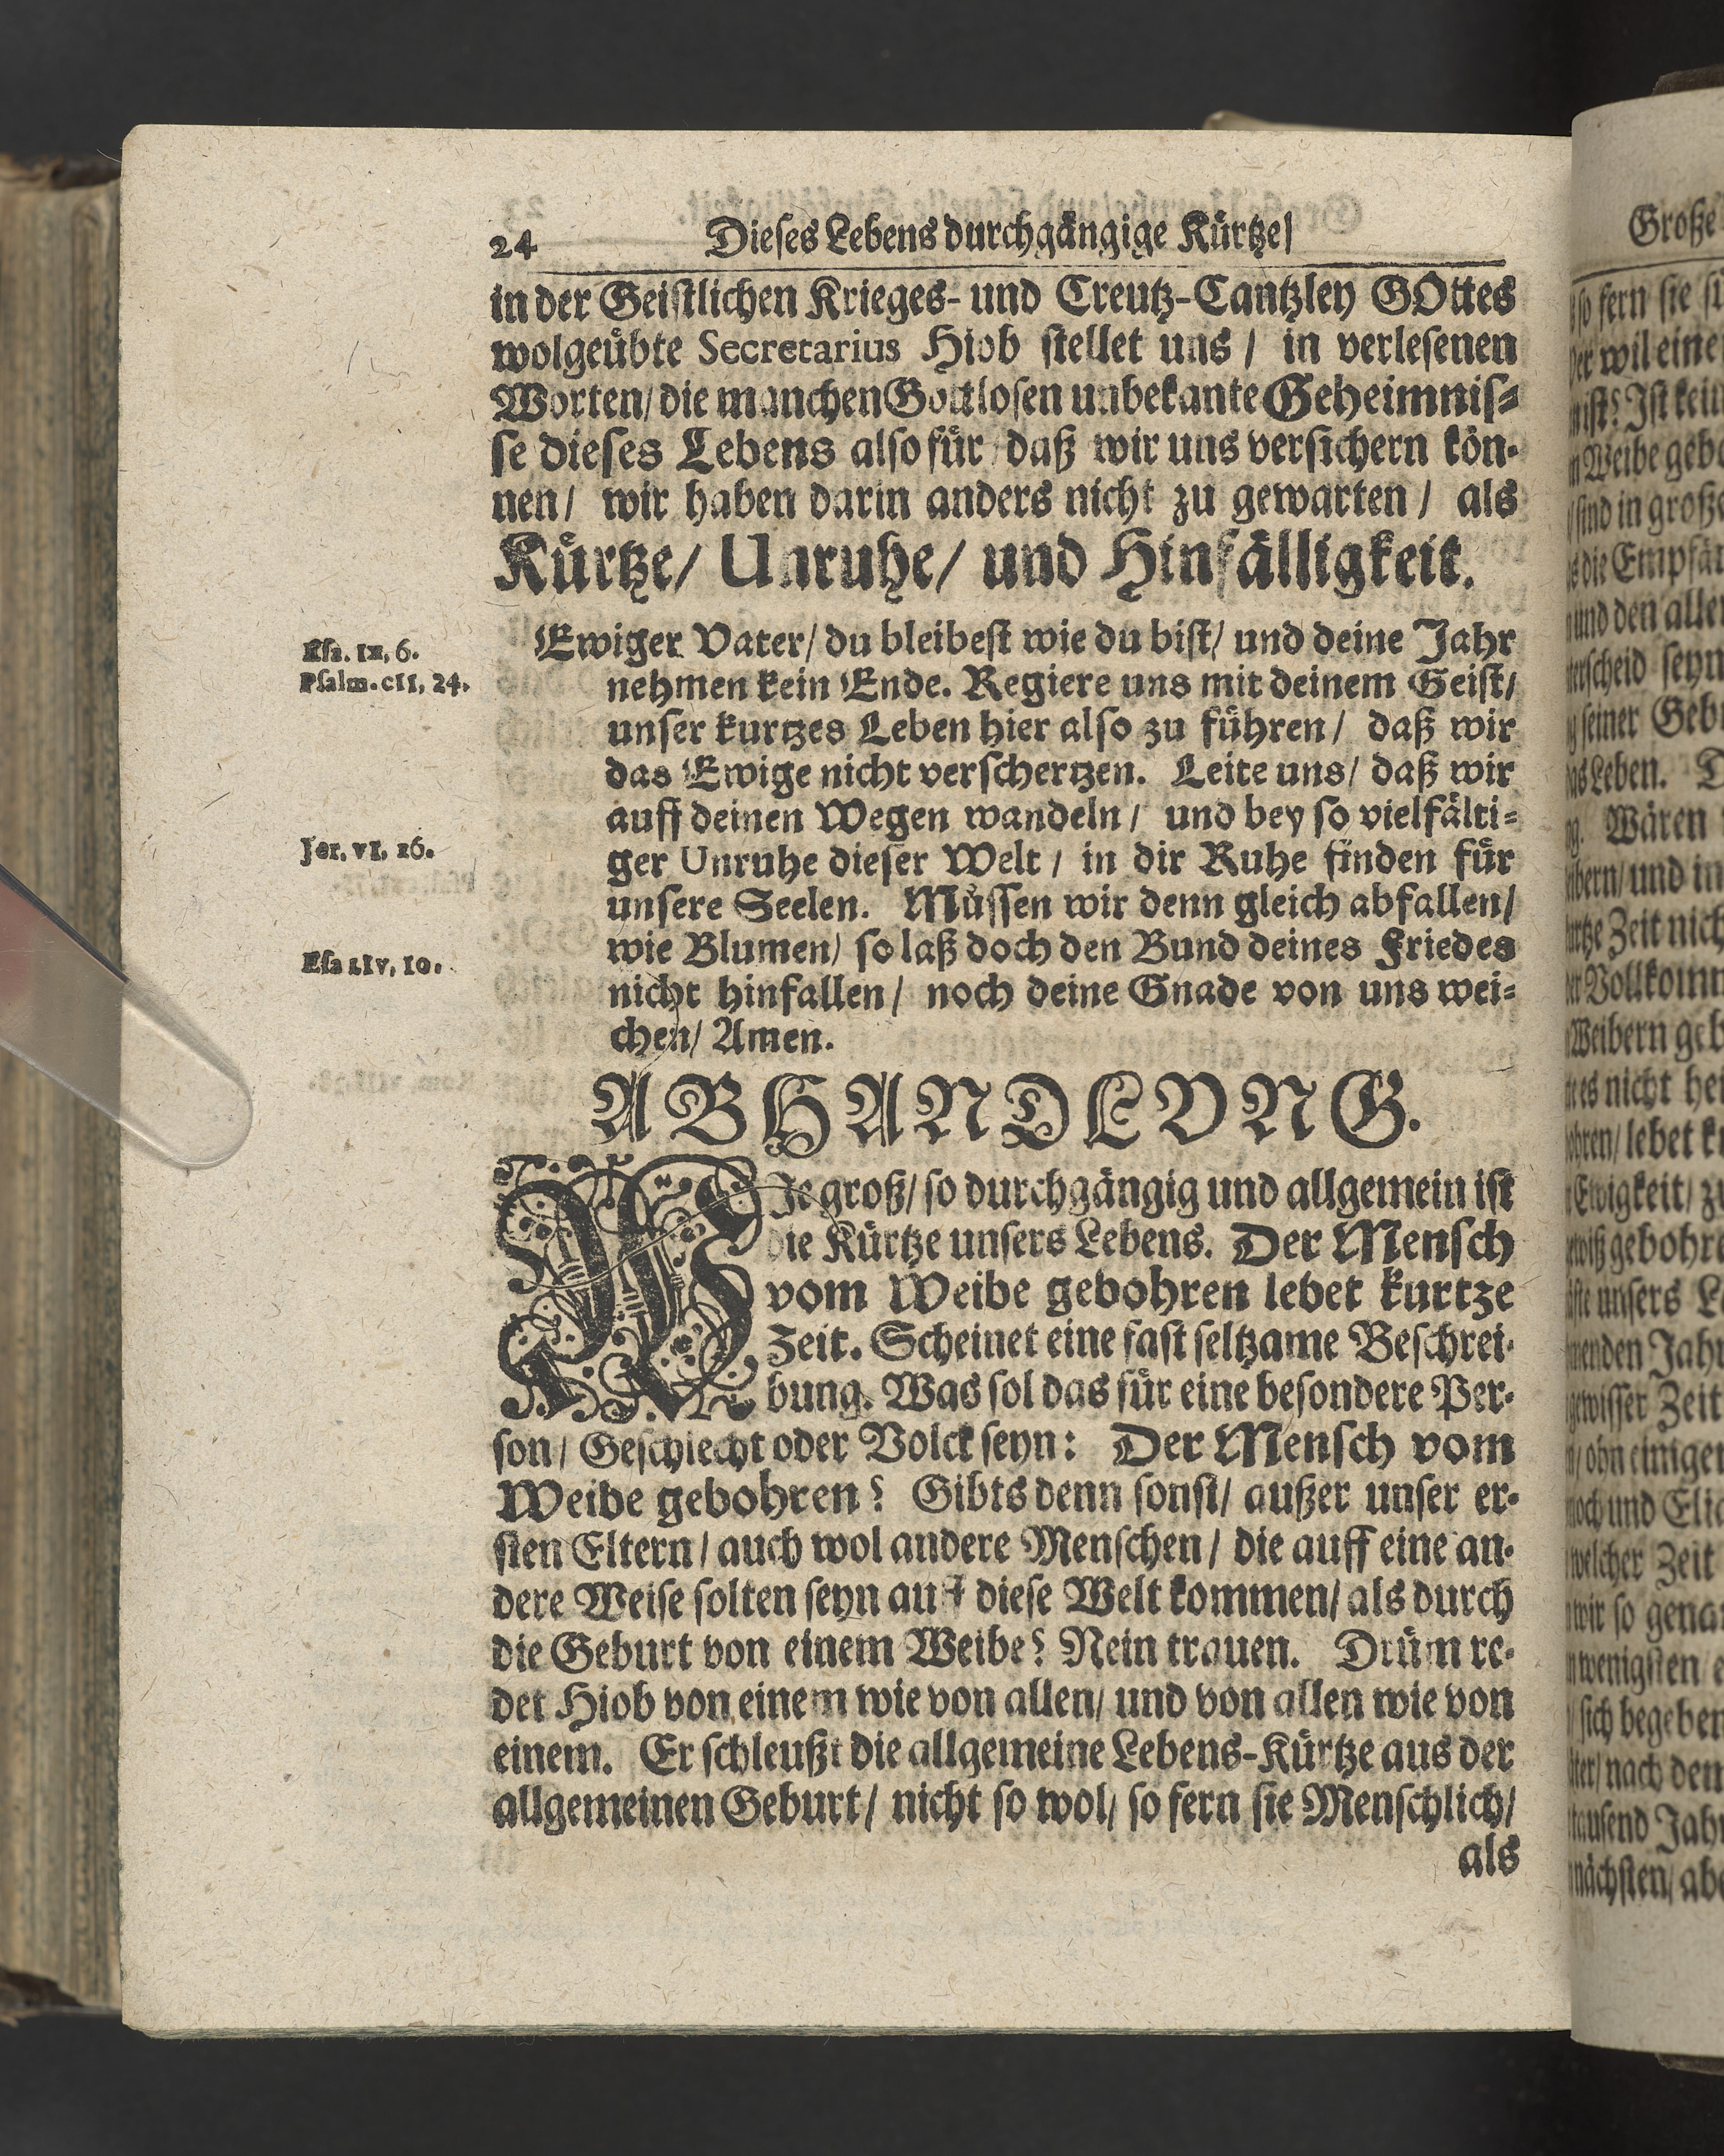 24 Dieses Lebens durchgängige Kürtze/
in der Geistlichen Krieges- und Creutz-Cantzley GOttes
wolgeübte Secretarius Hiob stellet uns / in verlesenen
Worten/ die manchen Gottlosen unbekante Geheimnis-
se dieses Lebens also für / daß wir uns versichern kön-
nen/ wir haben darin anders nicht zu gewarten / als
Kürtze/ Unruhe/ und Hinfälligkeit.
Esa. IX, 6.
Psalm. CII, 24.
Ewiger Vater/ du bleibest wie du bist/ und deine Jahr
nehmen kein Ende. Regiere uns mit deinem Geist/
unser kurtzes Leben hier also zu führen/ daß wir
das Ewige nicht verschertzen. Leite uns/ daß wir
auff deinen Wegen wandeln/ und bey so vielfälti-
Jer. VI, 16.
ger Unruhe dieser Welt / in dir Ruhe finden für
unsere Seelen. Müssen wir denn gleich abfallen/
Esa LIV, 10.
wie Blumen/ so laß doch den Bund deines Friedes
nicht hinfallen/ noch deine Gnade von uns wei-
chen/ Amen.
ABHANDLVNG.
WJe groß/ so durchgängig und allgemein ist
die Kürtze unsers Lebens. Der Mensch
vom Weibe gebohren lebet kurtze
Zeit. Scheinet eine fast seltzame Beschrei-
bung. Was sol das für eine besondere Per-
son/ Geschlecht oder Volck seyn: Der Mensch vom
Weibe gebohren? Gibts denn sonst/ außer unser er-
sten Eltern/ auch wol andere Menschen/ die auff eine an-
dere Weise solten seyn auff diese Welt kommen/ als durch
die Geburt von einem Weibe? Nein trauen. Drüm re-
det Hiob von einem wie von allen/ und von allen wie von
einem. Er schleußt die allgemeine Lebens-Kürtze aus der
allgemeinen Geburt/ nicht so wol/ so fern sie Menschlich/
als